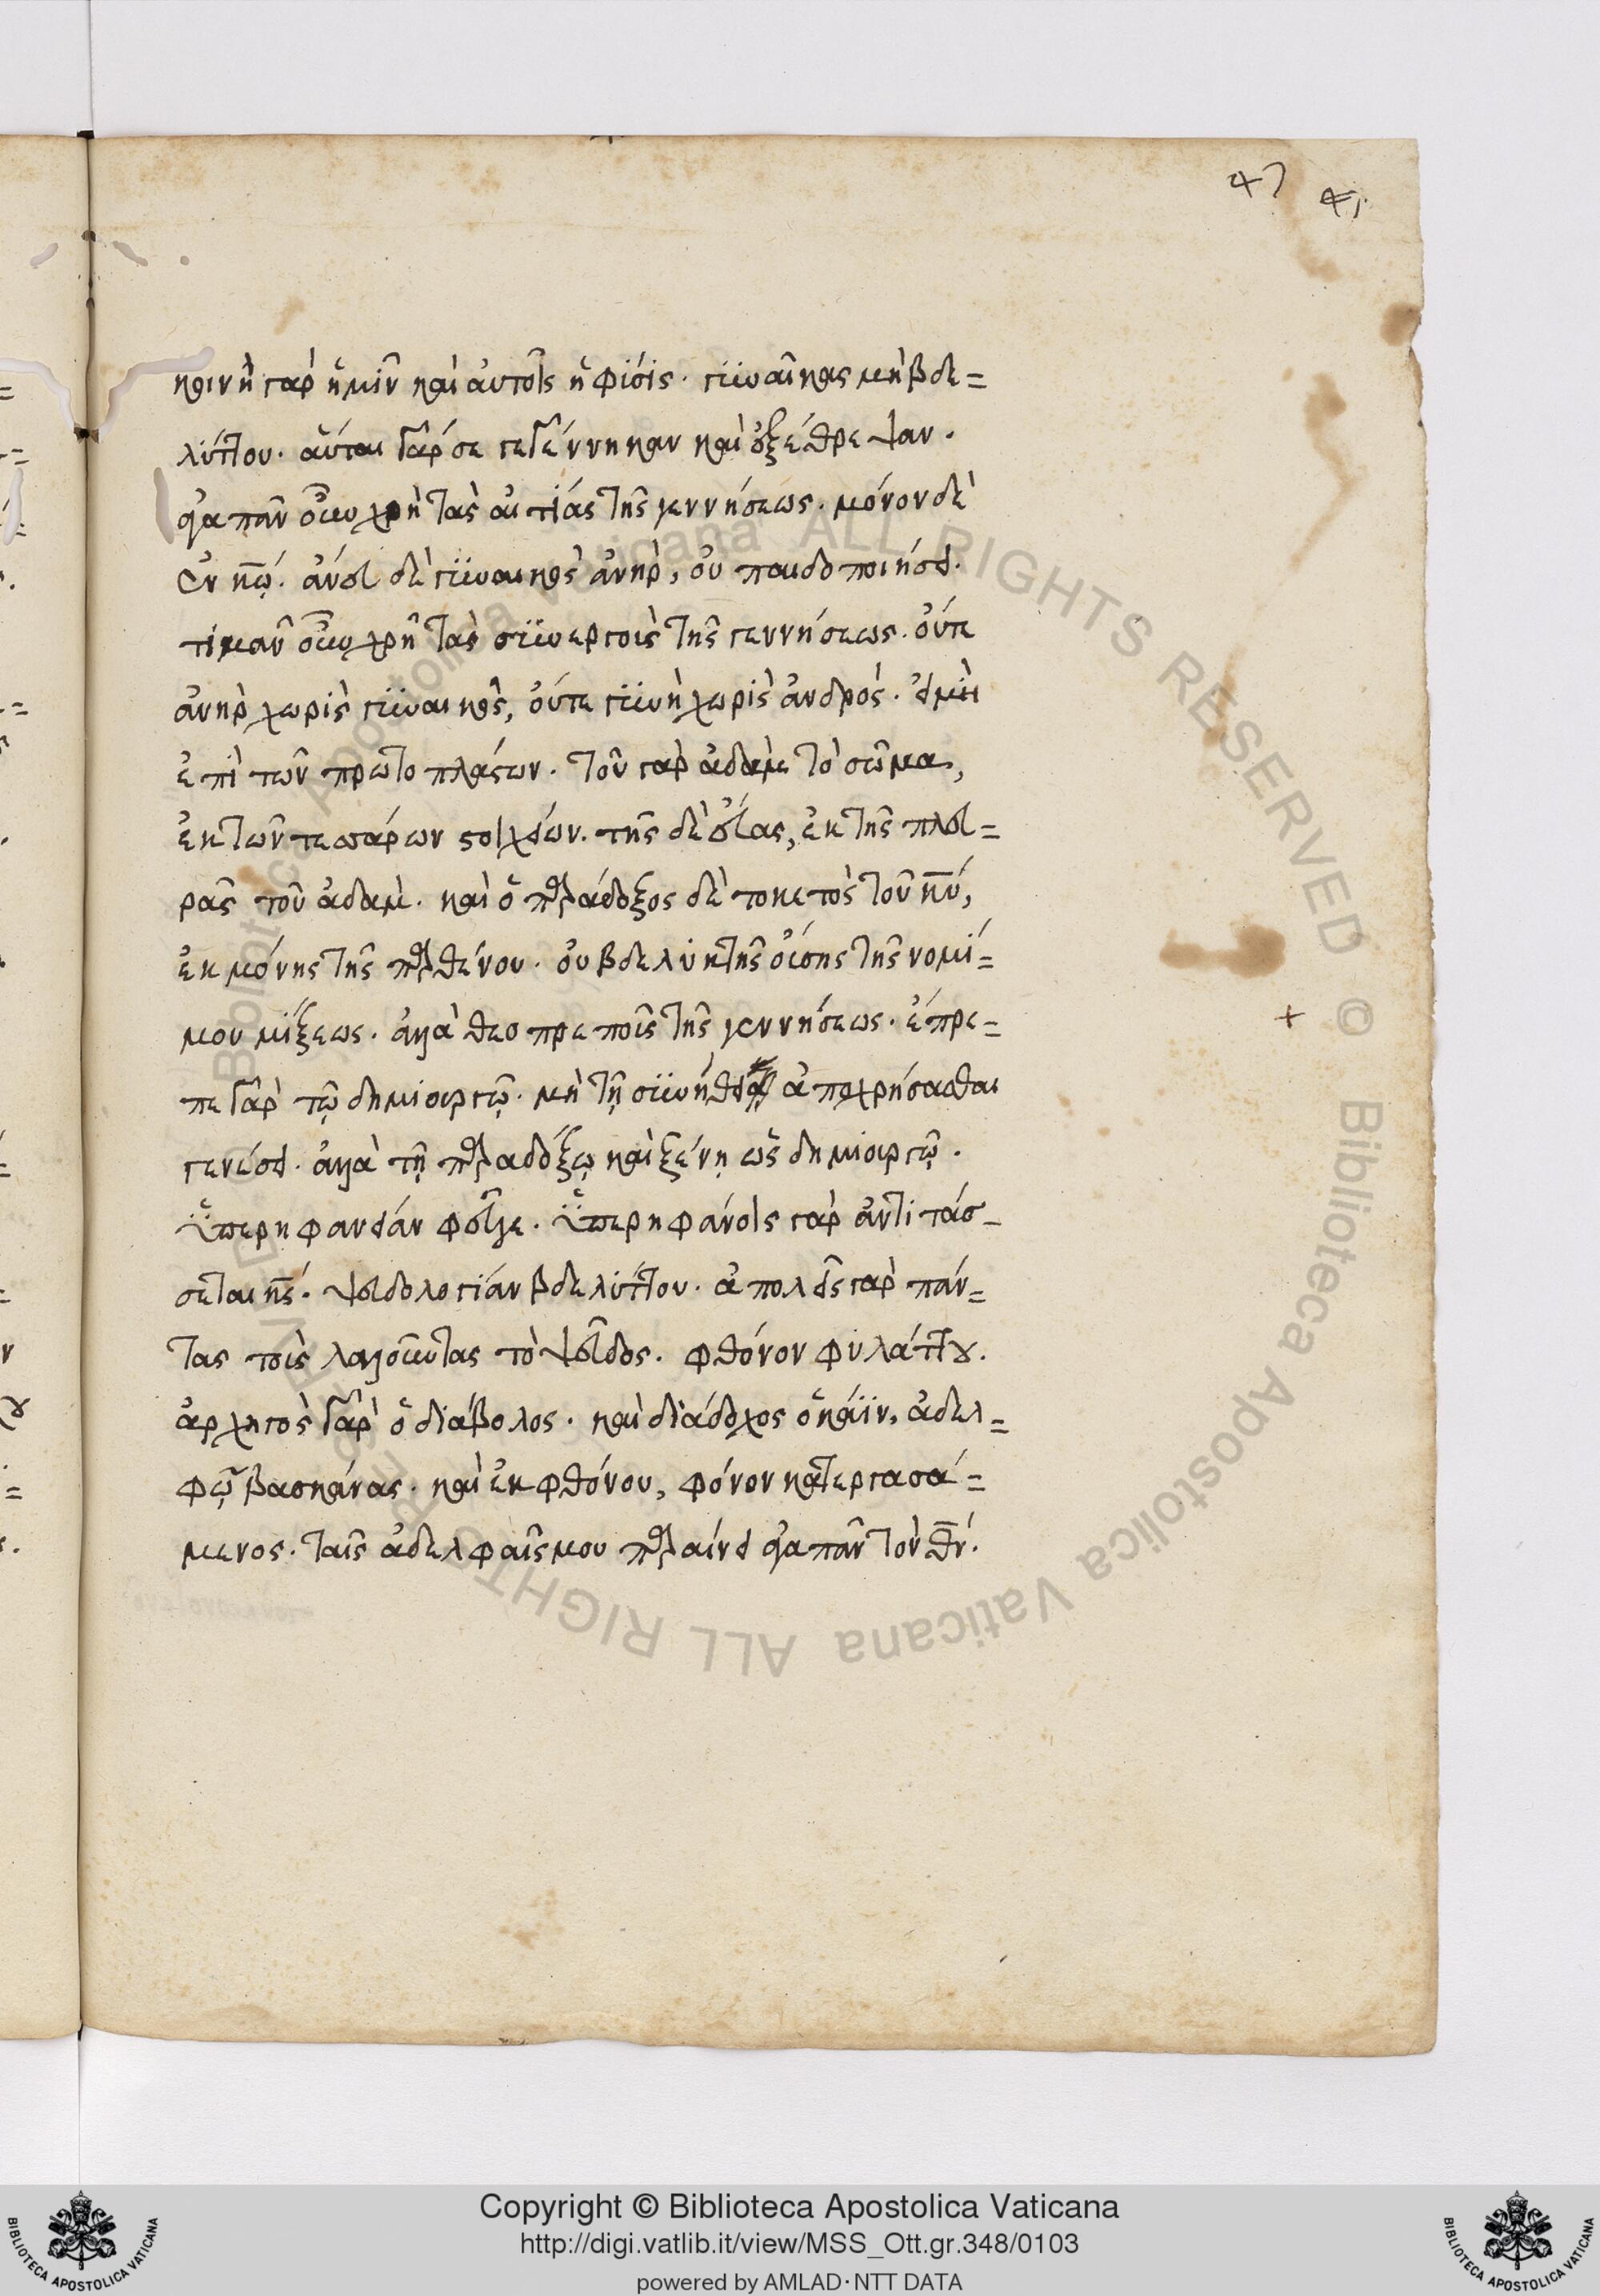 47 41
κοινὴ γὰρ ἡμῖν καὶ αὐτοῖς ἡ φύσις. γυναῖκας μὴ βδε=
λύττου. αὗται γάρ σε γεγέννηκαν καὶ ἐξέθρεψαν.
ἀγαπᾶν οὖν χρὴ τὰς αἰτίας τῆς γεννήσεως. μόνον δὲ
ἐν κω̅. ἄνευ δὲ γυναικὸς ἀνὴρ, οὐ παιδοποιήσει.
τιμᾶν οὖν χρὴ τὰς συνεργοὺς τῆς γεννήσεως. οὔτε
ἀνὴρ χωρὶς γυναικὸς, οὔτε γυνὴ χωρὶς ἀνδρός. εἰ μὴ
ἐπὶ τῶν πρωτοπλάστων. τοῦ γὰρ ἀδὰμ τὸ σῶμα,
ἐκ τῶν τεσσάρων στοιχείων. τῆς δὲ εὔας, ἐκ τῆς πλευ=
ρᾶς τοῦ ἀδάμ. καὶ ὁ παράδοξος δὲ τοκετὸς τοῦ κυ̅,
ἐκ μόνης τῆς παρθένου. οὐ βδελυκτῆς οὔσης τῆς νομί=
μου μίξεως. ἀλλὰ θεοπρεποῦς τῆς γεννήσεως. ἔπρε=
πε γὰρ τῷ δημιουργῷ. μὴ τῇ συνήθει ἀποχρήσασθαι
γενέσει. ἀλλὰ τῇ παραδόξῳ καὶ ξένῃ ὡς δημιουργῷ.
ὑπερηφανείαν φεῦγε. ὑπερηφάνοις γὰρ ἀντιτάσ-
σεται κς̅. ψευδολογίαν βδελύττου. ἀπολεῖς γὰρ πάν=
τας τοὺς λαλοῦντας τὸ ψεῦδος. φθόνον φυλάττου.
ἀρχηγὸς γὰρ ὁ διάβολος. καὶ διάδοχος ὁ κάϊν, ἀδελ=
φῷ βασκάνας. καὶ ἐκ φθόνου, φόνον κατεργασά=
μενος. ταῖς ἀδελφαῖς μου παραίνει ἀγαπᾶν τὸν θν̅.
Copyright © Biblioteca Apostolica Vaticana
http://digi.vatlib.it/view/MSS_Ott.gr.348/0103
powered by AMLAD·NTT DATA